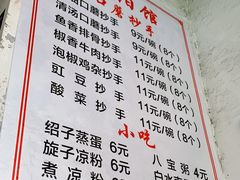 日馆
口蘑抄手
清汤口蘑抄手 9元/碗(8个)
鱼香排骨抄手 11元/碗(8个)
椒香牛肉抄手 11元/碗(8个)
泡椒鸡杂抄手 11元/碗(8个)
豇豆抄手 11元/碗(8个)
酸菜抄手 11元/碗(8个)
小吃
绍子蒸蛋 6元 八宝粥 4元
旋子凉粉 6元
煮凉粉